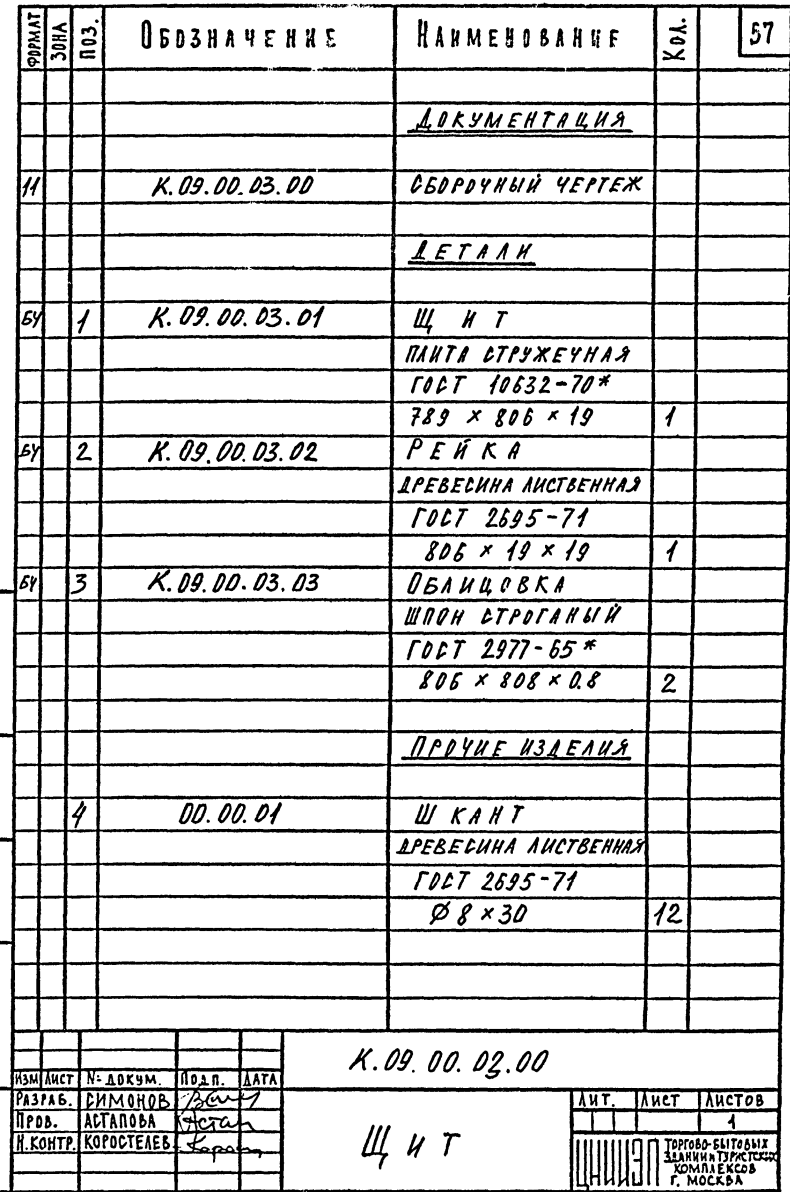 ФОРМАТ ЗОНА ПОЗ. ОБОЗНАЧЕНИЕ НАИМЕНОВАНИЕ КОЛ. 57
ДОКУМЕНТАЦИЯ
11 К.09.00.03.00 СБОРОЧНЫЙ ЧЕРТЕЖ
ДЕТАЛИ
БЧ 1 К.09.00.03.01 ЩИТ
ПЛИТА СТРУЖЕЧНАЯ
ГОСТ 10632-70*
789 × 806 × 19 1
БЧ 2 К.09.00.03.02 РЕЙКА
ДРЕВЕСИНА ЛИСТВЕННАЯ
ГОСТ 2695-71
806 × 19 × 19 1
БЧ 3 К.09.00.03.03 ОБЛИЦОВКА
ШПОН СТРОГАНЫЙ
ГОСТ 2977-65*
806 × 808 × 0.8 2
ПРОЧИЕ ИЗДЕЛИЯ
4 00.00.01 ШКАНТ
ДРЕВЕСИНА ЛИСТВЕННАЯ
ГОСТ 2695-71
Ø 8 × 30 12
К.09.00.03.00
ИЗМ ЛИСТ № ДОКУМ. ПОДП. ДАТА
РАЗРАБ. СИМОНОВ
ПРОВ. АСТАПОВА
Н.КОНТР. КОРОСТЕЛЕВ
ЩИТ
ЛИТ. ЛИСТ ЛИСТОВ
1
ЦНИИЭП
ТОРГОВО-БЫТОВЫХ
ЗДАНИЙ И ТУРИСТСКИХ
КОМПЛЕКСОВ
Г. МОСКВА